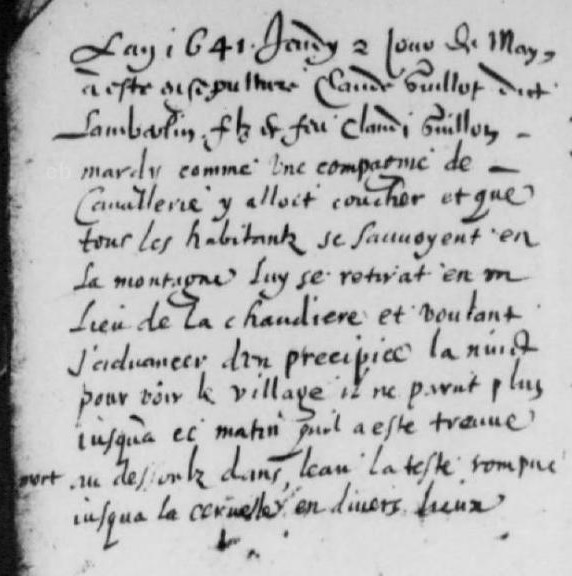 Lan 1641. Jeudy 2 Jour de May,
a este ensepulture Claude Guillot dict
Lambelin filz de feu Claude Guillot
mardy comme une compagnie de
Cavallerie y alloit coucher et que
tous les habitantz se sauvoyent en
La montagne luy se retirat en un
Lieu de La chaudiere et voulant
s'advancer d'un precipice la nuict
pour voir le village il ne parut plus
iusqua ce matin quil a este treuve
mort au dessoubz dans leau la teste rompue
iusqua la cervelle en divers lieux